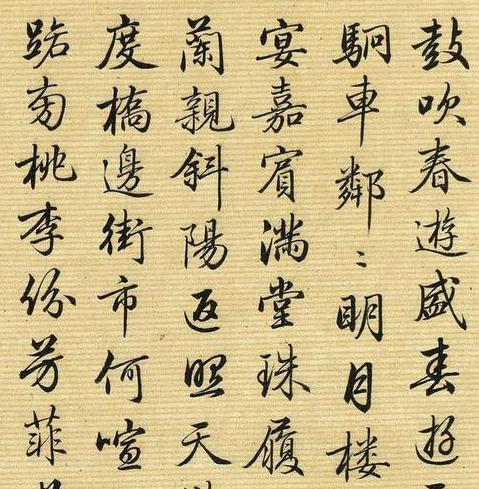 鼓吹春遊盛春遊
駉車鄰〻明月楼
宴嘉賓滿堂珠履
蘭親斜陽返照天
度橋邊街市何喧
踏南桃李份芳菲